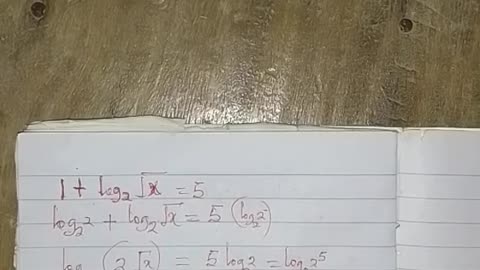 1 + log₂ √x = 5
log₂2 + log₂√x = 5 (log₂2)
log (2√x) = 5 log₂2 = log₂2⁵